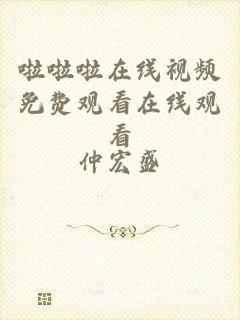 啦啦啦在线视频
免费观看在线观
看
仲宏盛